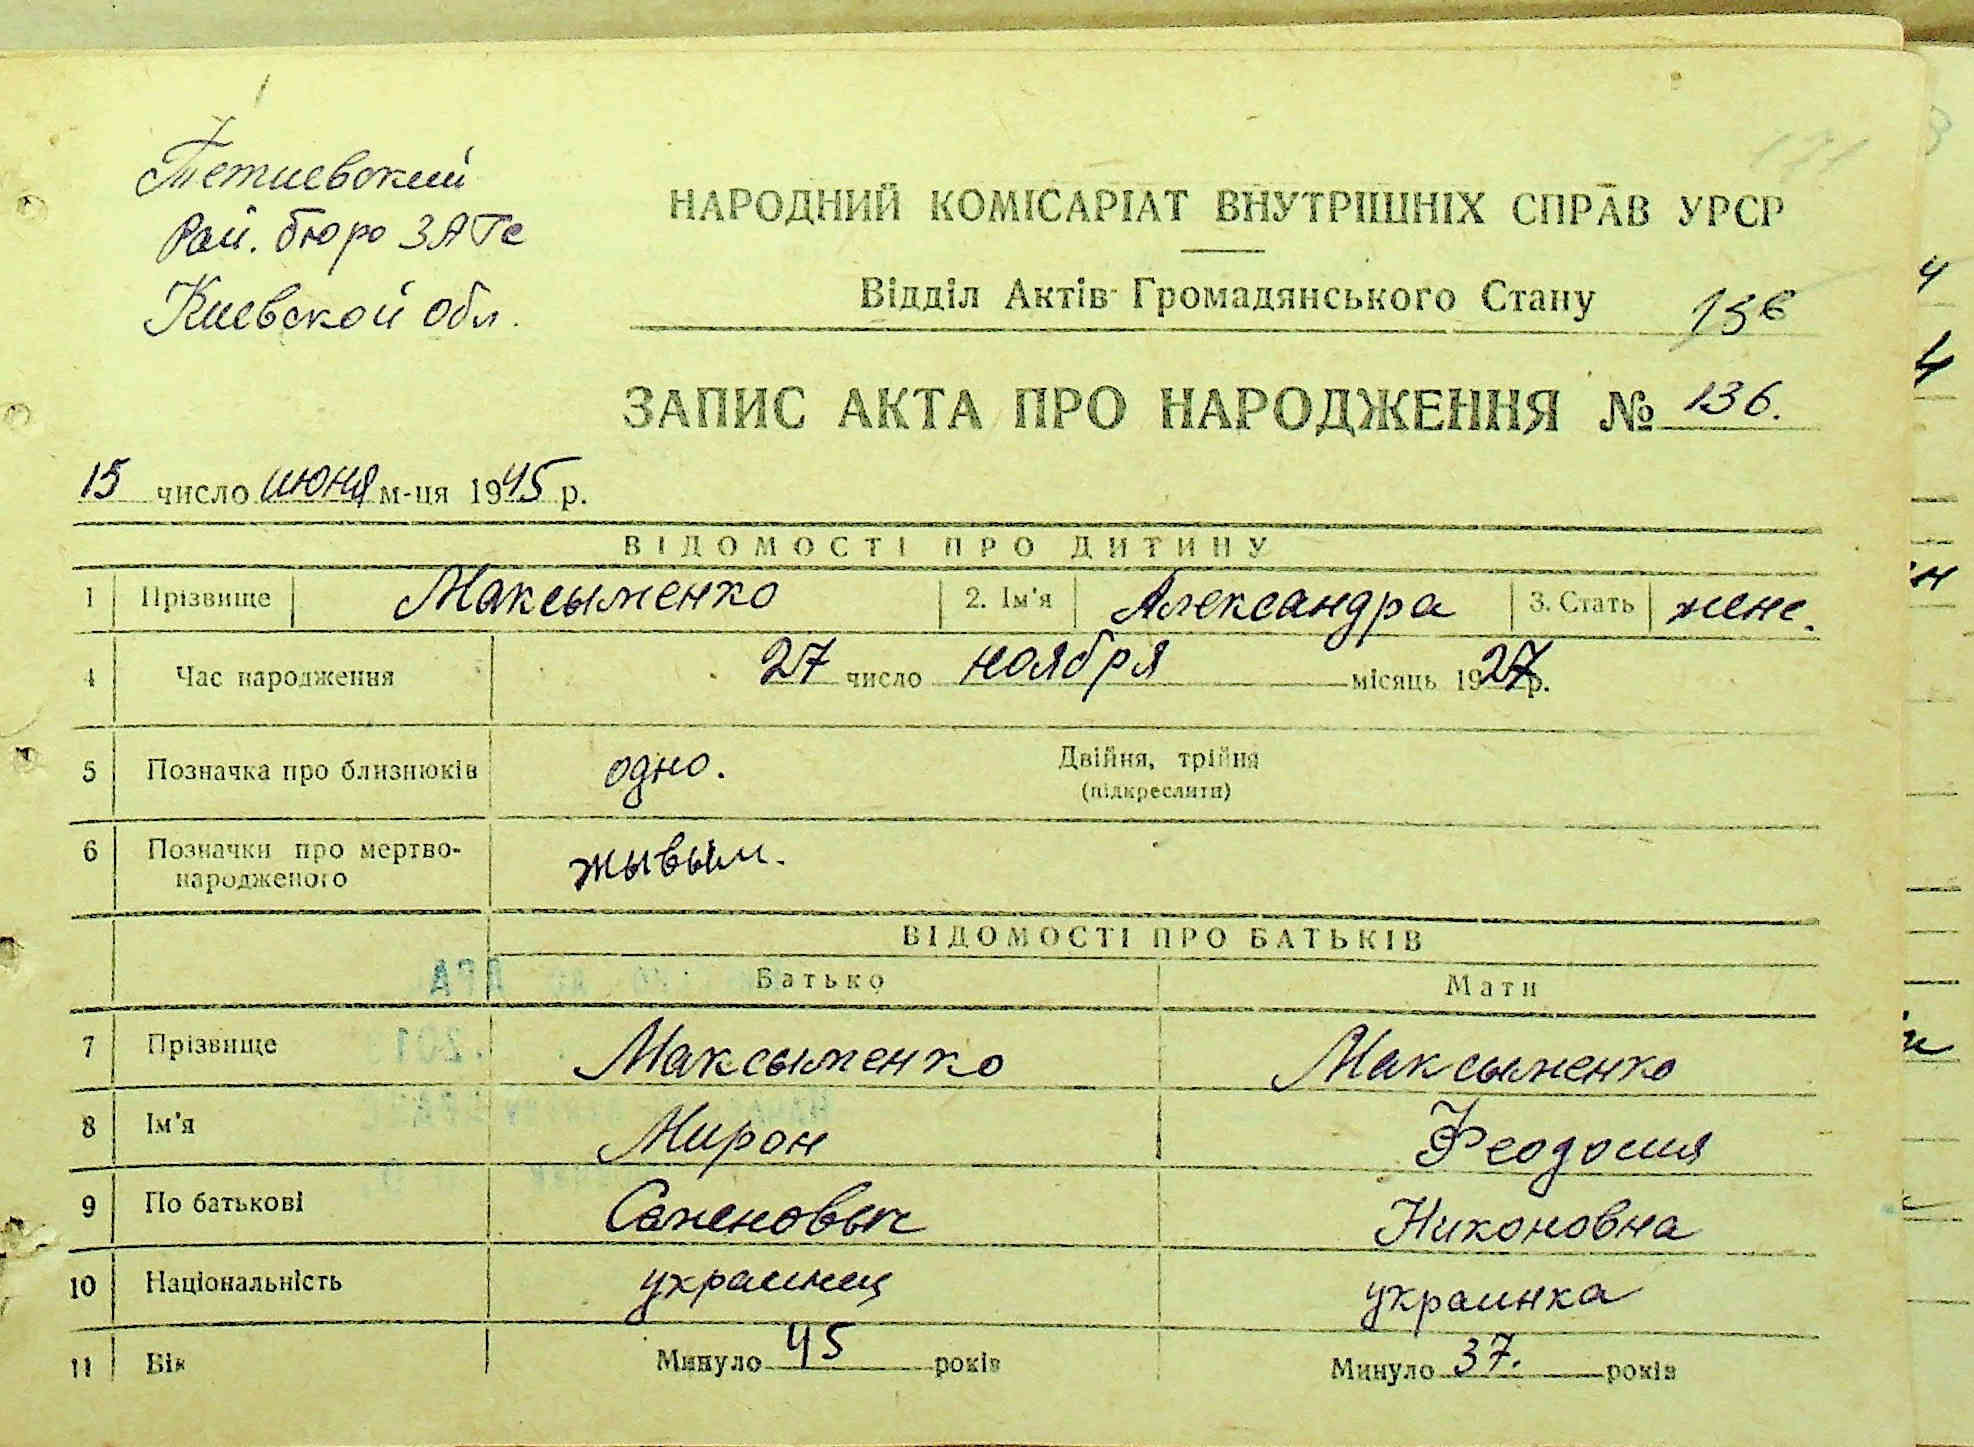 Тетиевский
Рай. бюро ЗАГс
Киевской обл.
НАРОДНИЙ КОМІСАРІАТ ВНУТРІШНІХ СПРАВ УРСР
Відділ Актів Громадянського Стану 136
ЗАПИС АКТА ПРО НАРОДЖЕННЯ № 136.
15 число июня м-ця 1945 р.
ВІДОМОСТІ ПРО ДИТИНУ
1 Прізвище Максыменко 2. Ім'я Александра 3. Стать женс.
4 Час народження 27 число ноября місяць 1927 р.
5 Позначка про близнюків одно. Двійня, трійня
(підкреслити)
6 Позначки про мертво-
народженого жывым.
ВІДОМОСТІ ПРО БАТЬКІВ
Батько Мати
7 Прізвище Максыменко Максыменко
8 Ім'я Мирон Феодосия
9 По батькові Семеновыч Никоновна
10 Національність украинец украинка
11 Вік Минуло 45 років Минуло 37. років